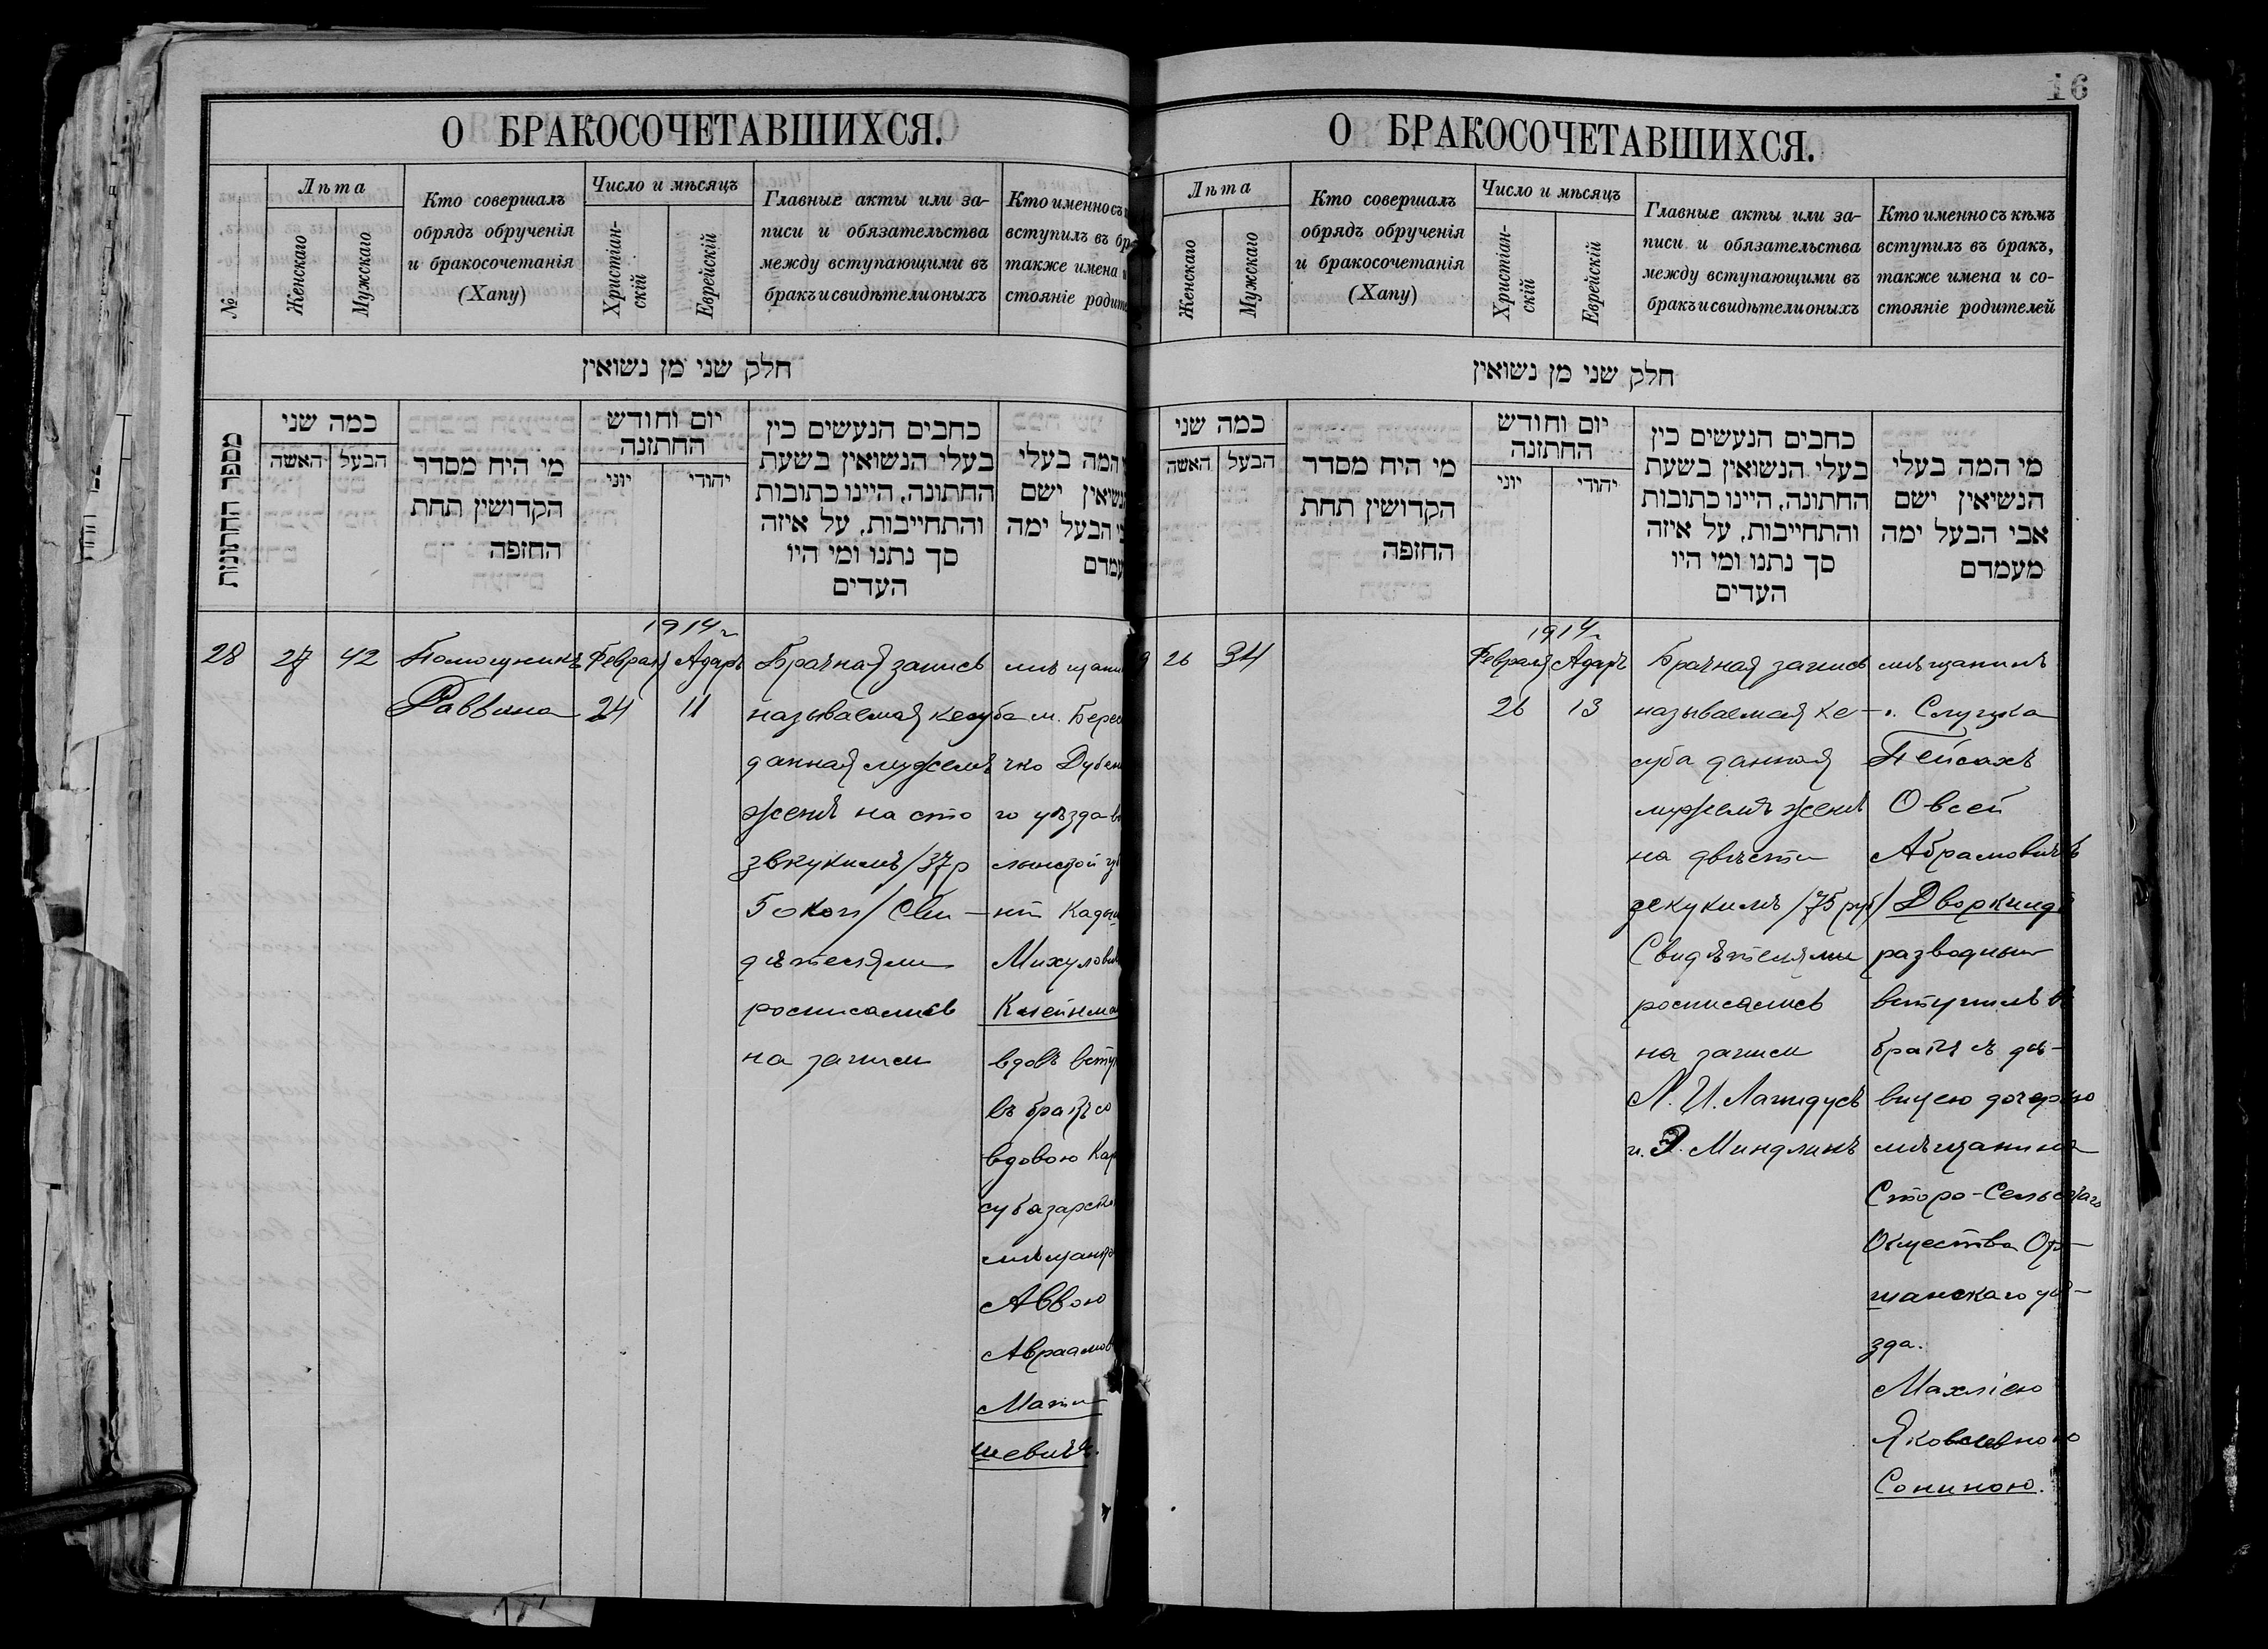 16
О БРАКОСОЧЕТАВШИХСЯ.
№
Лѣта
Женскаго
Мужскаго
Кто совершалъ
обрядъ обрученія
и бракосочетанія
(Хапу)
Число и мѣсяцъ
Христіан-
скій
Еврейскій
Главные акты или за-
писи и обязательства
между вступающими въ
бракъ и свидѣтели оныхъ
Кто именно съ
вступилъ въ бр
также имена и
стояніе родите
חלק שני מן נשואין
מספר החתונות
כמה שני
האשה
הבעל
מי היח מסדר
הקדושין תחת
החופה
יום וחודש
החתונה
יוני
יהודי
כחבים הנעשים כין
בעלי הנשואין בשעת
החתונה, היינו כתובות
והתחייבות, על איזה
סך נתנו ומי היו
העדים
המה בעלי
נשואין ישם
בי הבעל ימה
עמדם
28
27
42
Помощникъ
Раввина
1914 г
Февраля
24
Адаръ
11
Брачная запись
называемая кесуба
данная мужемъ
женѣ на сто
звкукимъ /37 р
50 коп/ Сви-
дѣтелями
росписались
на записи
мѣщани
м. Берес
чко Дубен
го уѣзда в
лынской гу
нiи Кадиш
Михулови
Клейнма
вдовъ всту
въ бракъ со
вдовою Кар
субазарско
мѣщанко
Аввою
Авраамов
Мати-
шевичъ.
О БРАКОСОЧЕТАВШИХСЯ.
Лѣта
Женскаго
Мужскаго
Кто совершалъ
обрядъ обрученія
и бракосочетанія
(Хапу)
Число и мѣсяцъ
Христіан-
скій
Еврейскій
Главные акты или за-
писи и обязательства
между вступающими въ
бракъ и свидѣтели оныхъ
Кто именно съ кѣмъ
вступилъ въ бракъ,
также имена и со-
стояніе родителей
חלק שני מן נשואין
כמה שני
האשה
הבעל
מי היח מסדר
הקדושין תחת
החופה
יום וחודש
החתונה
יוני
יהודי
כחבים הנעשים כין
בעלי הנשואין בשעת
החתונה, היינו כתובות
והתחייבות, על איזה
סך נתנו ומי היו
העדים
מי המה בעלי
הנשיאין ישם
אבי הבעל ימה
מעמדם
26
34
1914 г
Февраля
26
Адаръ
13
Брачная запись
называемая ке-
суба данная
мужемъ женѣ
на двѣсти
зекукимъ /75 руб/
Свидѣтелями
росписались
на записи
Л. И. Лапидусъ
и. Э. Миндлинъ
мѣщанинъ
г. Слуцка
Пейсахъ
Овсей
Абрамовичъ
Дворкинд
разводный
вступилъ въ
бракъ съ дѣ-
вицею дочерью
мѣщанина
Старо-Сельскаго
Общества Ор-
шанскаго уѣ-
зда.
Махліею
Яковлевною
Сониною.